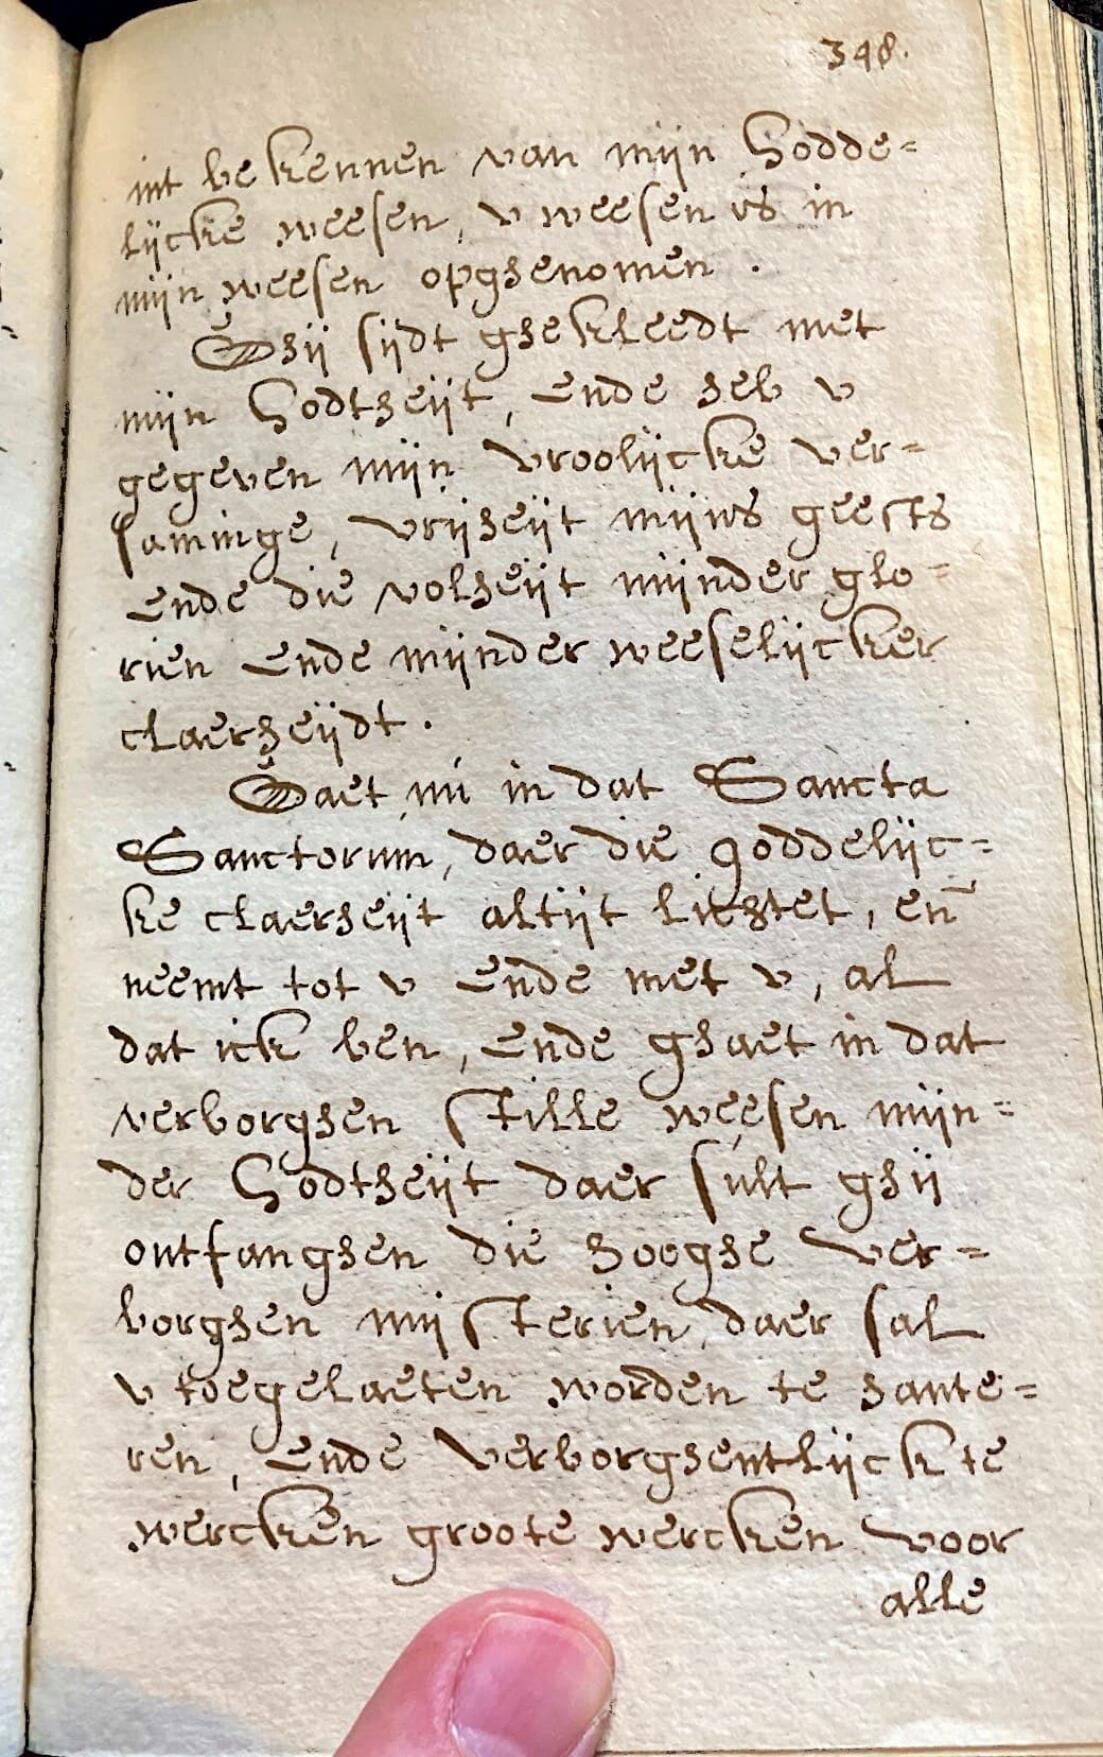 348.
int bekennen van mijn Godde=
lijcke weesen, v weesen is in
mijn weesen opghenomen .
Ghij sijdt ghekleedt met
mijn Godtheijt, ende heb v
gegeven mijn vroolijcke ver=
saminge, vrijheijt mijns geests
ende die volheijt mijnder glo=
rien ende mijnder weeselijcker
claerheijdt .
Gaet nú in dat Sancta
Sanctorum, daer die goddelijc=
ke claerheijt altijt lichtet, en̄
neemt tot v ende met v, al
dat ick ben, ende ghaet in dat
verborghen stille weesen mijn=
der Godtheijt daer sult ghij
ontfanghen die hooghe ver=
borghen mijsterien, daer sal
v toegelaeten worden te hante=
ren, ende verborghentlijck te
wercken groote wercken voor
alle